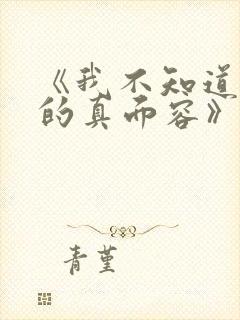 《我不知道
的真而容》
青堇